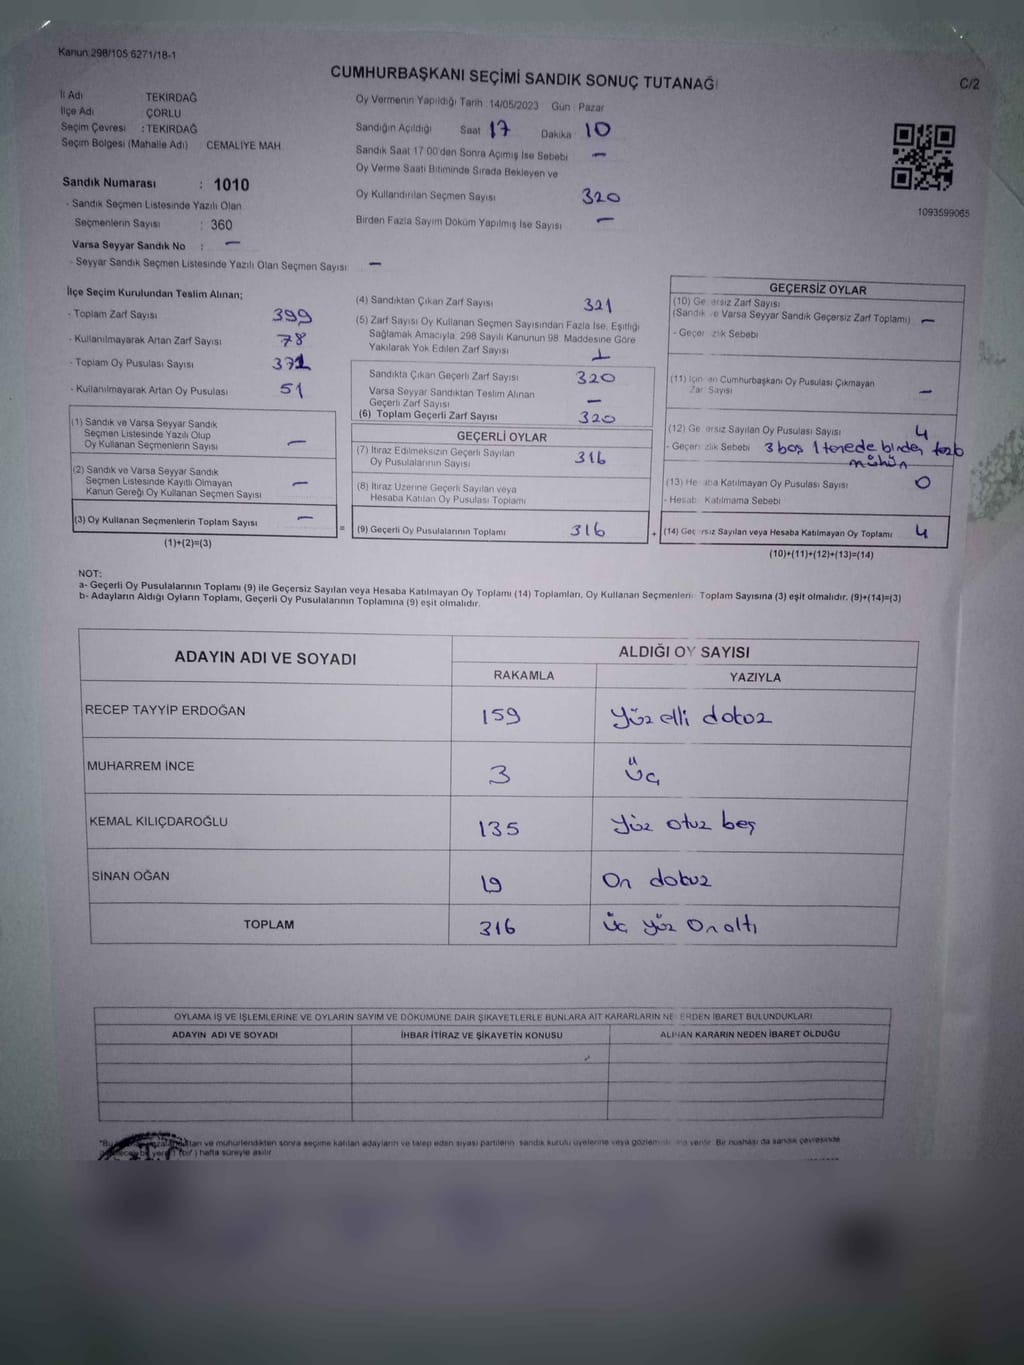 Kanun 298/105 6271/18-1
CUMHURBAŞKANI SEÇİMİ SANDIK SONUÇ TUTANAĞI
C/2
İl Adı TEKİRDAĞ
İlçe Adı ÇORLU
Seçim Çevresi : TEKİRDAĞ
Seçim Bölgesi (Mahalle Adı) CEMALİYE MAH.
Sandık Numarası : 1010
- Sandık Seçmen Listesinde Yazılı Olan
Seçmenlerin Sayısı : 360
Varsa Seyyar Sandık No : –
- Seyyar Sandık Seçmen Listesinde Yazılı Olan Seçmen Sayısı –
Oy Vermenin Yapıldığı Tarih 14/05/2023 Gün : Pazar
Sandığın Açıldığı Saat 17 Dakika 10
Sandık Saat 17 00'den Sonra Açımış İse Sebebi –
Oy Verme Saati Bitiminde Sırada Bekleyen ve
Oy Kullandırılan Seçmen Sayısı 320
Birden Fazla Sayım Döküm Yapılmış İse Sayısı –
1093599065
İlçe Seçim Kurulundan Teslim Alınan;
- Toplam Zarf Sayısı 399
- Kullanılmayarak Artan Zarf Sayısı 78
- Toplam Oy Pusulası Sayısı 371
- Kullanılmayarak Artan Oy Pusulası 51
(1) Sandık ve Varsa Seyyar Sandık
Seçmen Listesinde Yazılı Olup
Oy Kullanan Seçmenlerin Sayısı –
(2) Sandık ve Varsa Seyyar Sandık
Seçmen Listesinde Kayıtlı Olmayan
Kanun Gereği Oy Kullanan Seçmen Sayısı –
(3) Oy Kullanan Seçmenlerin Toplam Sayısı –
(1)+(2)=(3)
=
(4) Sandıktan Çıkan Zarf Sayısı 321
(5) Zarf Sayısı Oy Kullanan Seçmen Sayısından Fazla İse, Eşitliği
Sağlamak Amacıyla, 298 Sayılı Kanunun 98. Maddesine Göre
Yakılarak Yok Edilen Zarf Sayısı 1
Sandıkta Çıkan Geçerli Zarf Sayısı 320
Varsa Seyyar Sandıktan Teslim Alınan
Geçerli Zarf Sayısı –
(6) Toplam Geçerli Zarf Sayısı 320
GEÇERLİ OYLAR
(7) İtiraz Edilmeksizin Geçerli Sayılan
Oy Pusulalarının Sayısı 316
(8) İtiraz Üzerine Geçerli Sayılan veya
Hesaba Katılan Oy Pusulası Toplamı
(9) Geçerli Oy Pusulalarının Toplamı 316
+
GEÇERSİZ OYLAR
(10) Ge ersiz Zarf Sayısı
(Sandık e Varsa Seyyar Sandık Geçersiz Zarf Toplamı) –
- Geçer zlik Sebebi
(11) İçin en Cumhurbaşkanı Oy Pusulası Çıkmayan
Zar Sayısı –
(12) Ge ersiz Sayılan Oy Pusulası Sayısı 4
- Geçer zlik Sebebi 3 boş 1 tenede birden fazla
mühür
(13) He aba Katılmayan Oy Pusulası Sayısı 0
- Hesab Katılmama Sebebi
(14) Geç rsiz Sayılan veya Hesaba Katılmayan Oy Toplamı 4
(10)+(11)+(12)+(13)=(14)
NOT:
a- Geçerli Oy Pusulalarının Toplamı (9) ile Geçersiz Sayılan veya Hesaba Katılmayan Oy Toplamı (14) Toplamları, Oy Kullanan Seçmenleri Toplam Sayısına (3) eşit olmalıdır. (9)+(14)=(3)
b- Adayların Aldığı Oyların Toplamı, Geçerli Oy Pusulalarının Toplamına (9) eşit olmalıdır.
ADAYIN ADI VE SOYADI ALDIĞI OY SAYISI
RAKAMLA YAZIYLA
RECEP TAYYİP ERDOĞAN 159 Yüz elli dokuz
MUHARREM İNCE 3 Üç
KEMAL KILIÇDAROĞLU 135 Yüz otuz beş
SİNAN OĞAN 19 On dokuz
TOPLAM 316 Üç yüz On altı
OYLAMA İŞ VE İŞLEMLERİNE VE OYLARIN SAYIM VE DÖKÜMÜNE DAİR ŞİKAYETLERLE BUNLARA AİT KARARLARIN NE ERDEN İBARET BULUNDUKLARI
ADAYIN ADI VE SOYADI İHBAR İTİRAZ VE ŞİKAYETİN KONUSU ALINAN KARARIN NEDEN İBARET OLDUĞU
ve mühürlendikten sonra seçime katılan adayların ve talep eden siyasi partilerin sandık kurulu üyelerine veya gözlem verilir. Bir nüshası da sandık çevresinde
hafta süreyle asılır